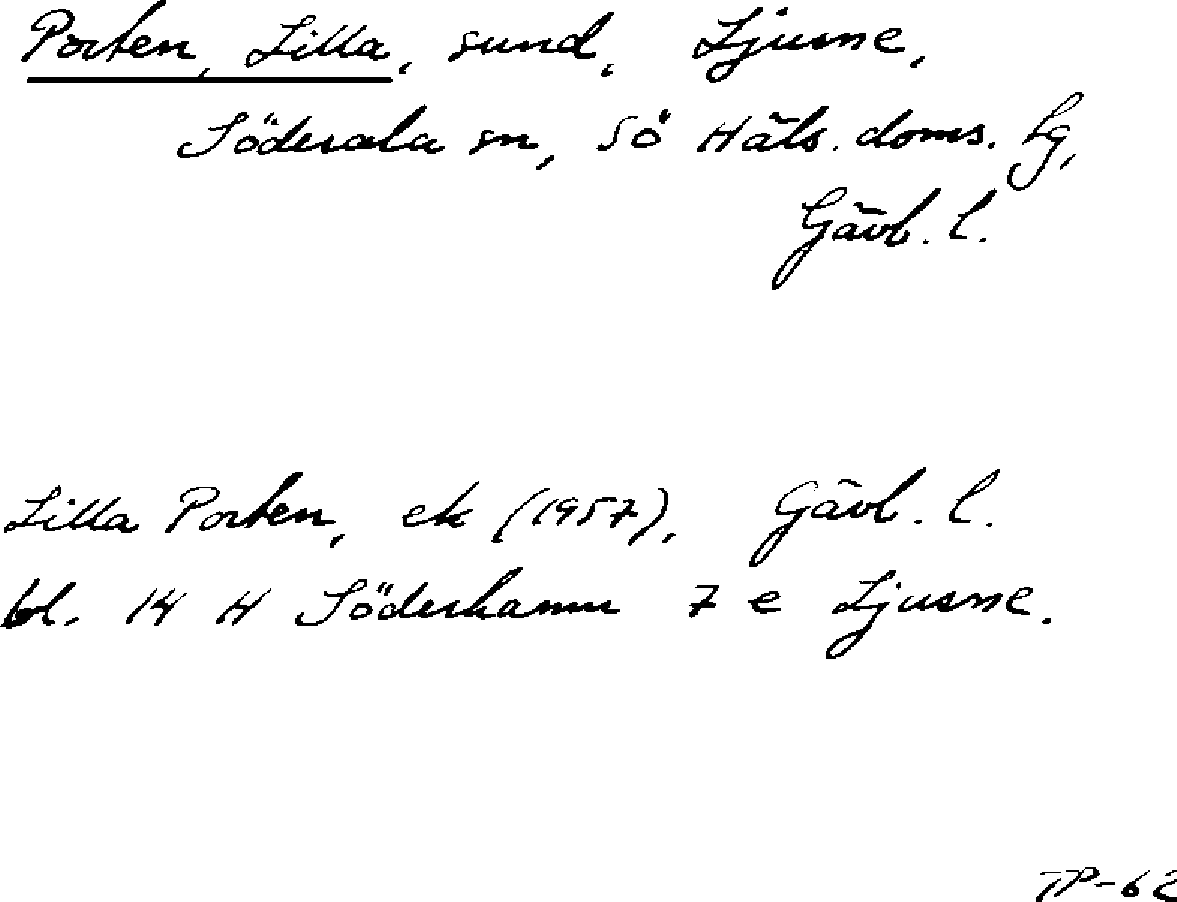 Porten, Lilla, sund, Ljusne,
Söderala sn, Sö Häls. doms. lg,
Gävl. l.
Lilla Porten, ek (1957), Gävl. l.
bl. 14 H Söderhamn 7 e Ljusne.
TP-62